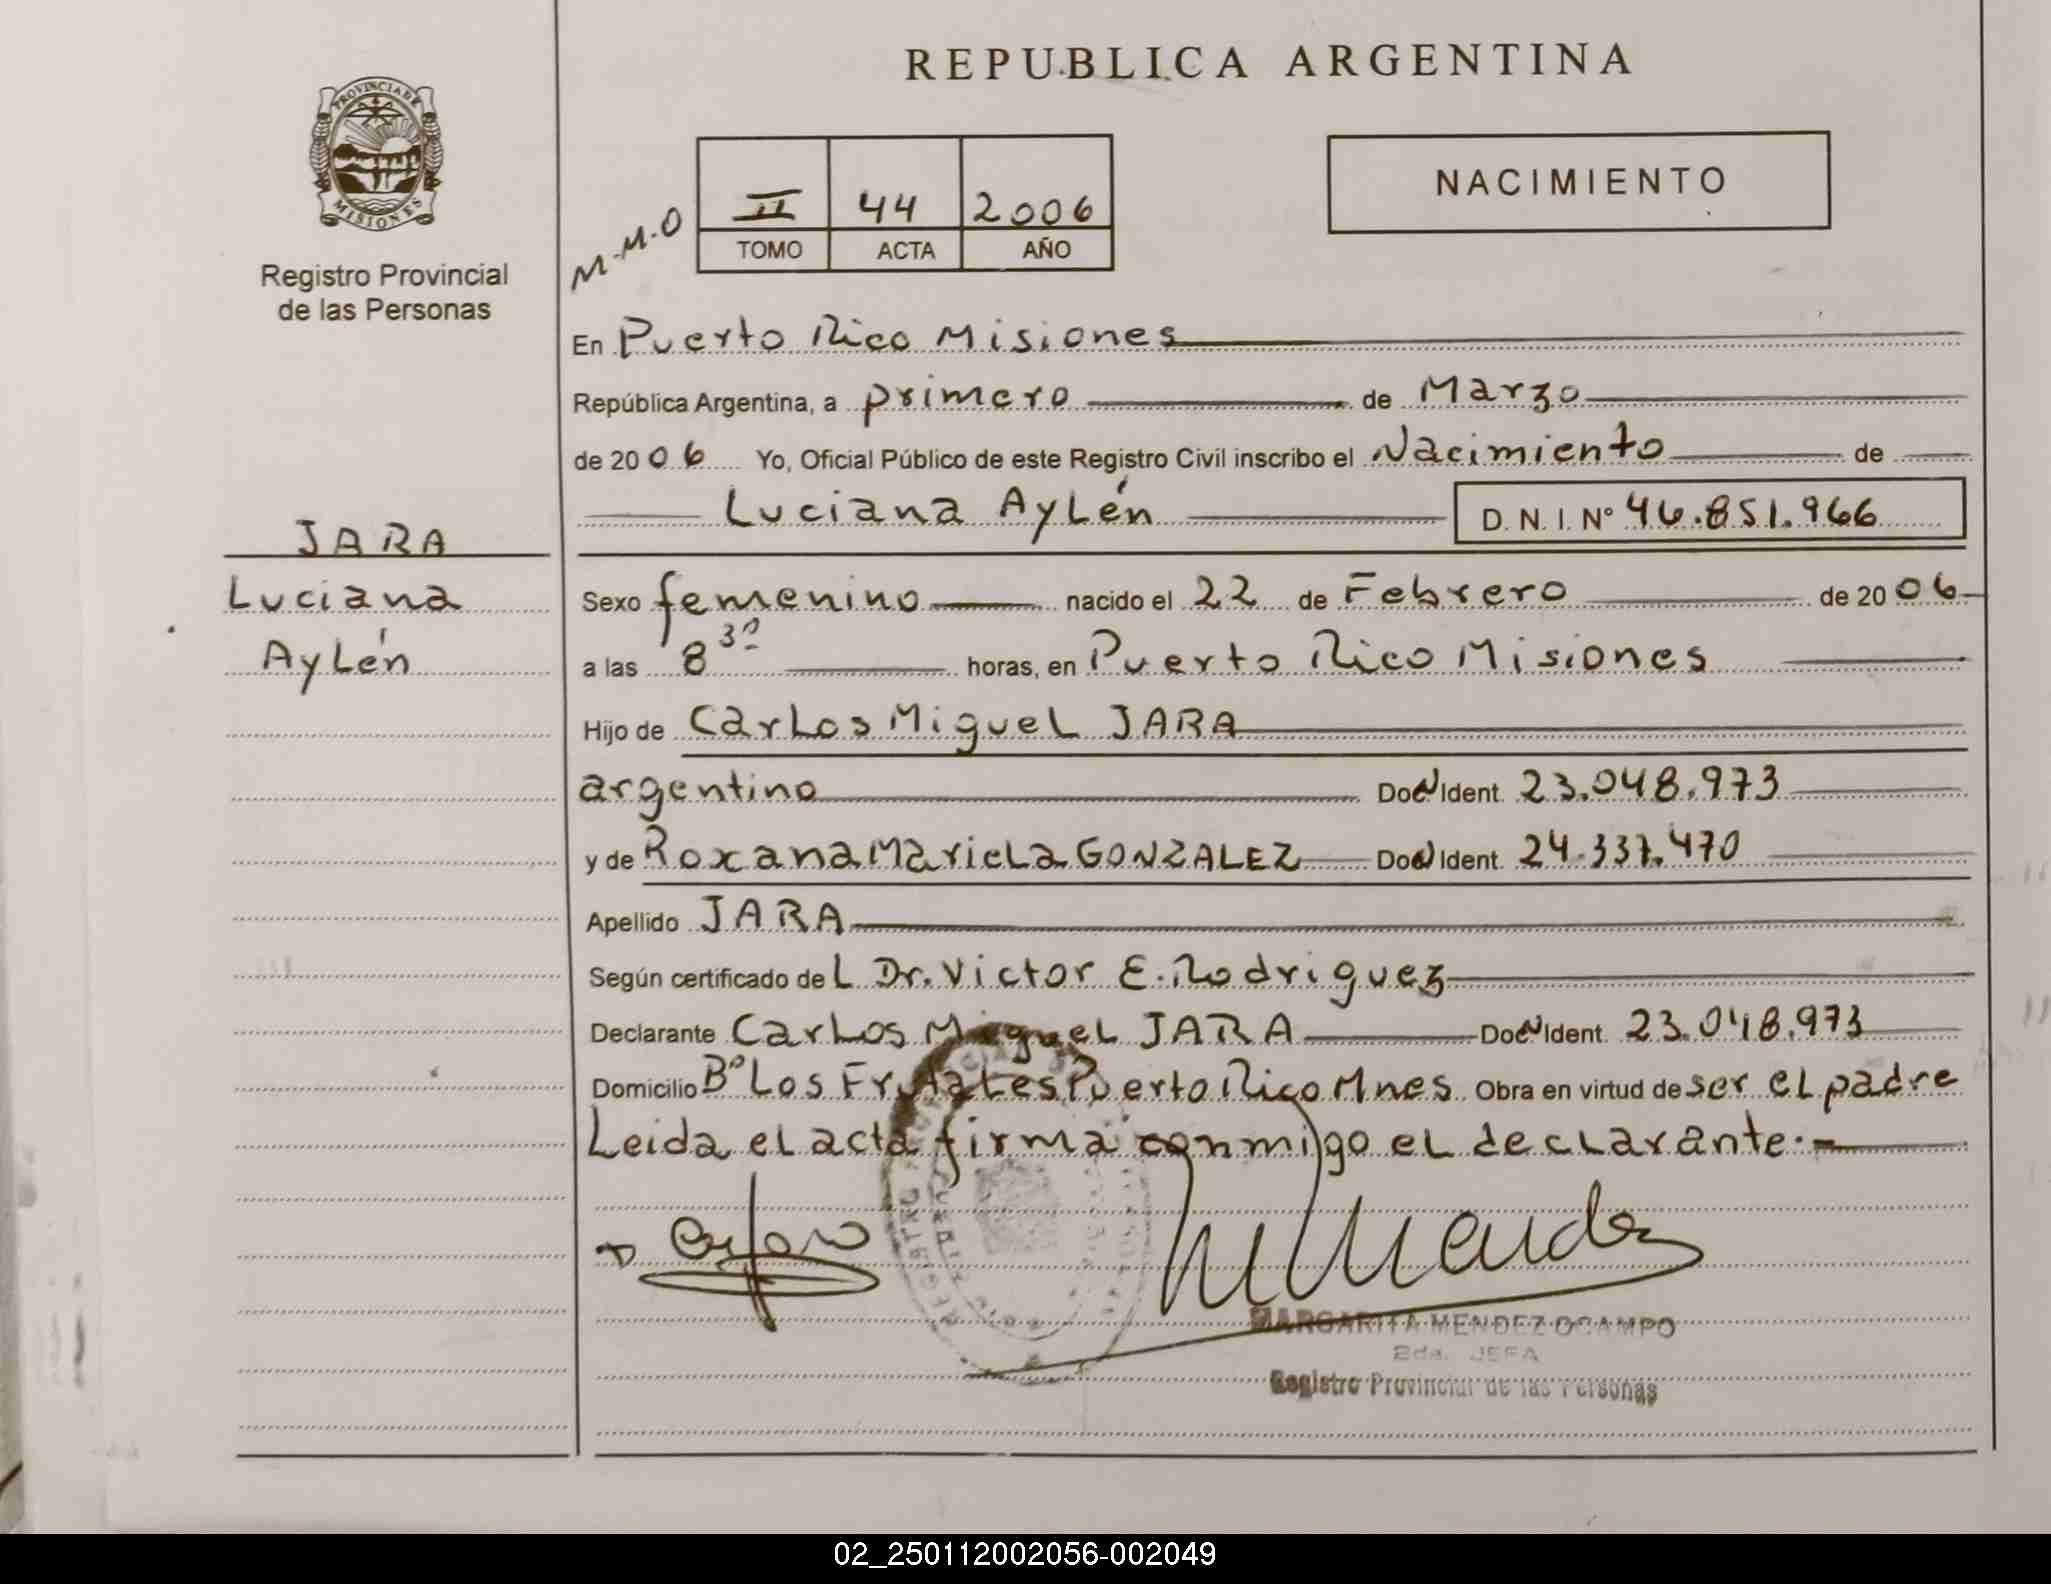 REPUBLICA ARGENTINA
PROVINCIA DE
MISIONES
Registro Provincial
de las Personas
M.M.O
II 44 2006
TOMO ACTA AÑO
NACIMIENTO
En Puerto Rico Misiones
República Argentina, a primero de Marzo
de 2006 Yo, Oficial Público de este Registro Civil inscribo el Nacimiento de
Luciana Aylén D. N. I. Nº 46.851.966
JARA
Luciana
Aylén
Sexo femenino nacido el 22 de Febrero de 2006
a las 8 30 horas, en Puerto Rico Misiones
Hijo de Carlos Miguel JARA
argentino Doc Ident. 23.048.973
y de Roxana Mariela GONZALEZ Doc Ident. 24.337.470
Apellido JARA
Según certificado del Dr. Victor E. Rodriguez
Declarante Carlos Miguel JARA Doc Ident. 23.048.973
Domicilio Bº Los Frutales Puerto Rico Mnes. Obra en virtud de ser el padre
Leida el acta firma conmigo el declarante.
MARGARITA MENDEZ OCAMPO
2da. JEFA
Registro Provincial de las Personas
02_250112002056-002049